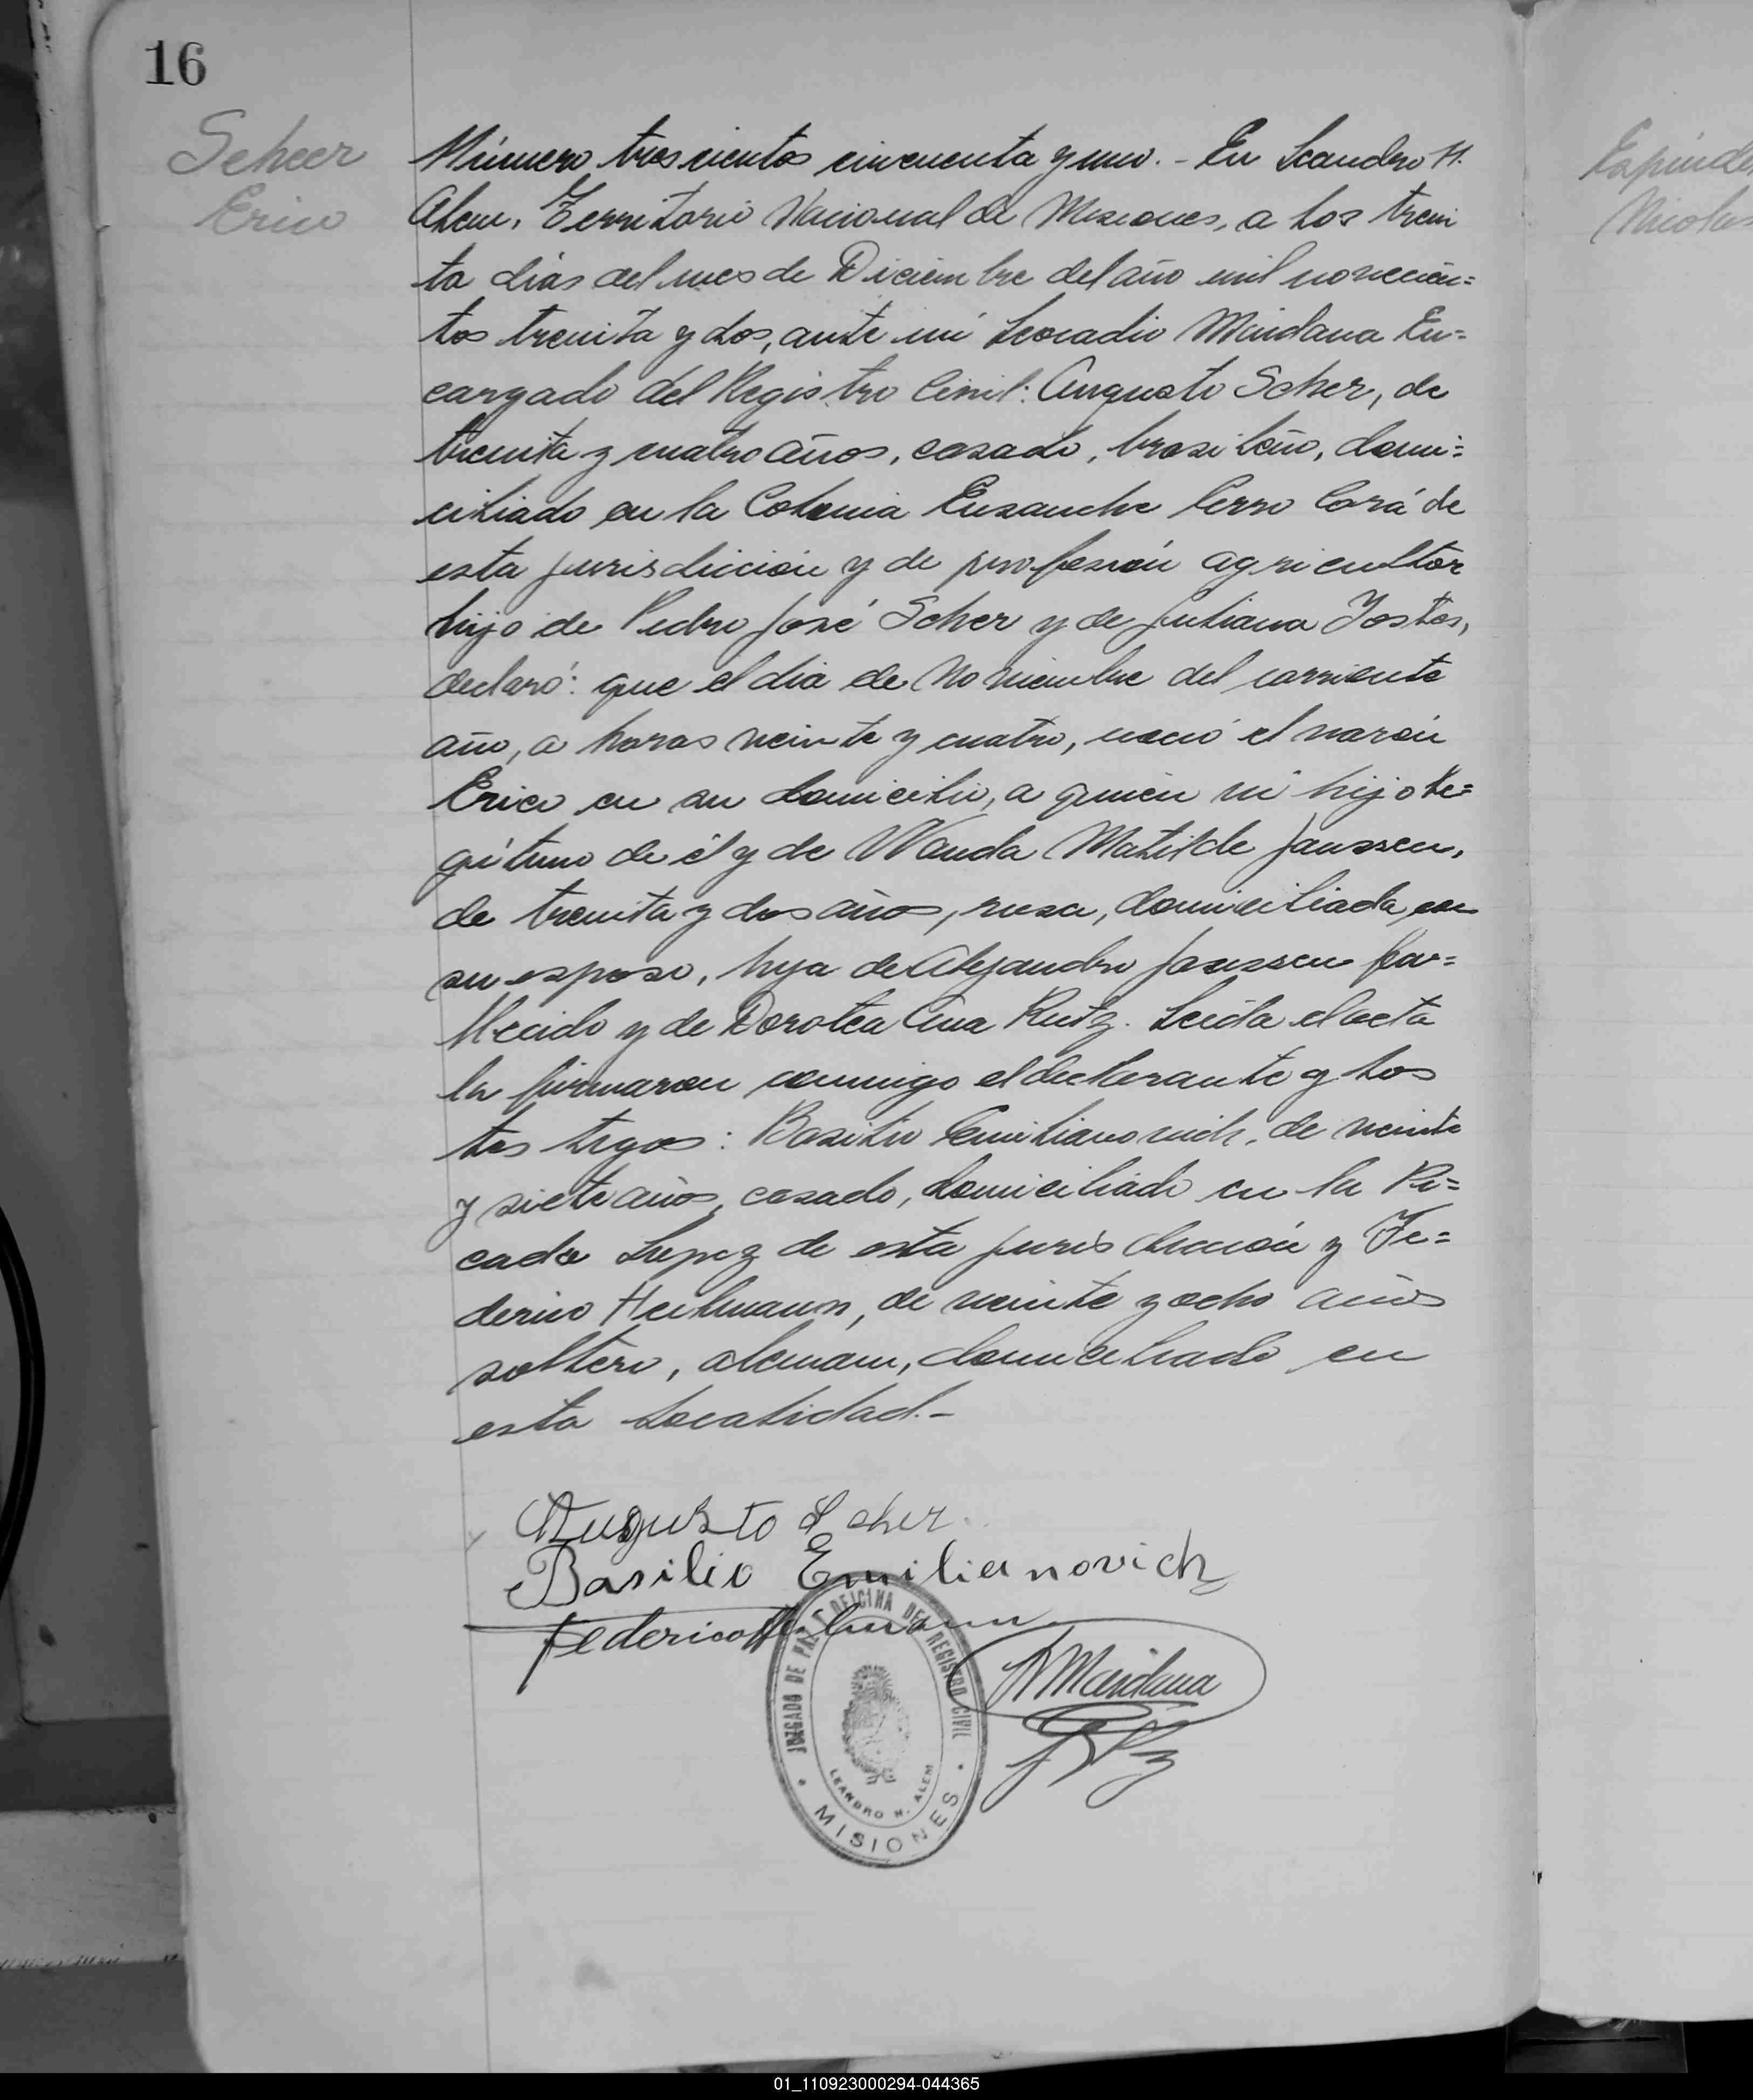 16
Scheer
Erico
Número trescientos cincuenta y uno. - En Leandro N.
Alem, Territorio Nacional de Misiones, a los trein
ta días del mes de Diciembre del año mil novecien=
tos treinta y dos, ante mí Leocadio Maidana En=
cargado del Registro Civil: Augusto Scher, de
treinta y cuatro años, casado, brasileño, domi=
ciliado en la Colonia Ensanche Cerro Corá de
esta jurisdicción y de profesión agricultor
hijo de Pedro José Scher y de Juliana Jostes,
declaró: que el día de Noviembre del corriente
año, a horas veinte y cuatro, nació el varón
Erico en su domicilio, a quien vi hijo le=
gítimo de él y de Wanda Matilde Janssen,
de treinta y dos años, rusa, domiciliada con
su esposo, hija de Alejandro Janssen fa=
llecido y de Dorotea Ana Rutz. Leída el acta
la firmaron conmigo el declarante y los
testigos: Basilio Emilianovich, de veinte
y siete años, casado, domiciliado en la Pi=
cada Lopez de esta jurisdicción y Fe=
derico Heilmann, de veinte y ocho años
soltero, aleman, domiciliado en
esta localidad.-
Augusto Scher.
Basilio Emilianovich
Federico Heilmann
Maidana
JUZGADO DE PAZ Y OFICINA DEL REGISTRO CIVIL
LEANDRO N. ALEM
MISIONES
Nicolas
01_110923000294-044365